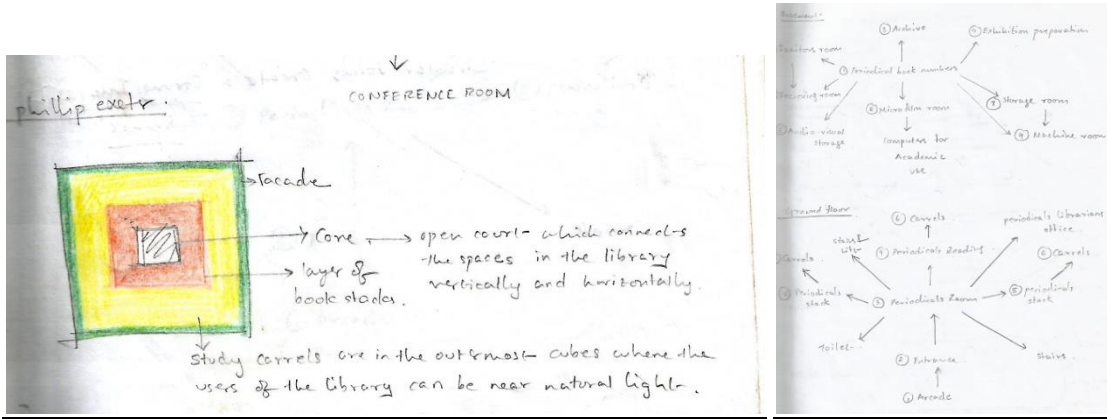 CONFERENCE ROOM
phillip exetr.
Facade
Core → open court which connects
the spaces in the library
vertically and horizontally.
layer of
book stacks.
study carrels are in the outermost cubes where the
users of the library can be near natural light.
Basement
③ Archive
Exhibition preparation
room
① Periodical back numbers
room
Microfilm room
Storage room
Audio visual
storage
Computers for
Academic
use
Machine room
Ground floor
Carrels
periodicals librarians
office
stairs &
Lift
Carrels
④ Periodicals Reading
⑥ Carrels
Periodicals
stack
③ Periodicals Room
⑤ periodicals
stack
Toilet
② Entrance
Stairs
① Arcade